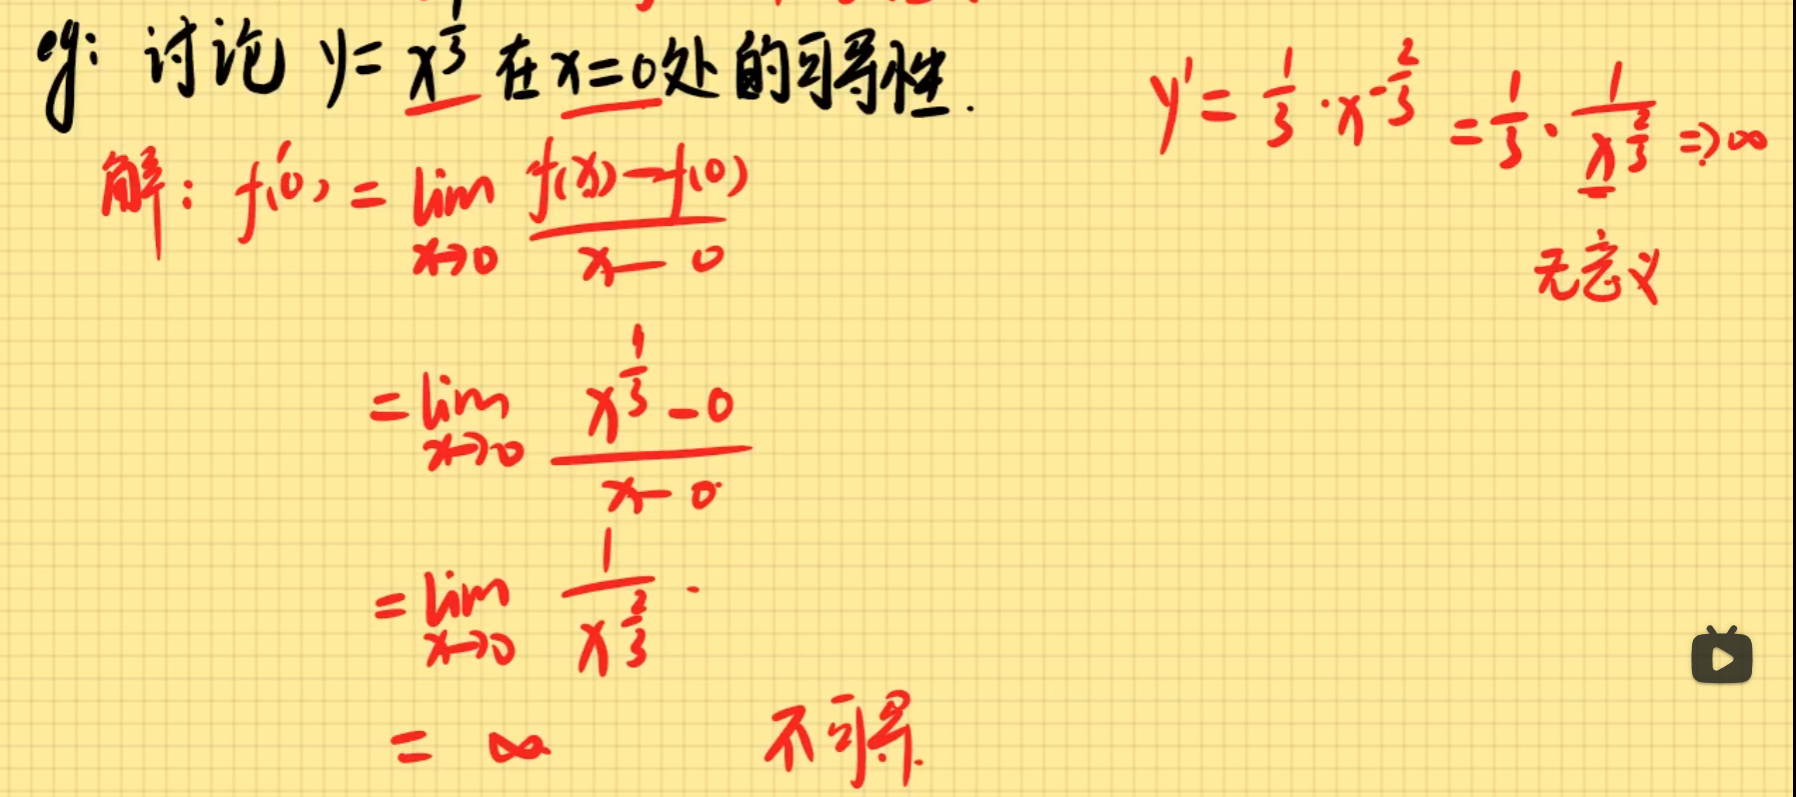 eg: 讨论 y = x^{1/3} 在 x=0 处的可导性.
解: f'(0) = lim_{x→0} \frac{f(x)-f(0)}{x-0}
= lim_{x→0} \frac{x^{1/3}-0}{x-0}
= lim_{x→0} \frac{1}{x^{2/3}}.
= ∞ 不可导.
y' = \frac{1}{3}·x^{-2/3} = \frac{1}{3}·\frac{1}{x^{2/3}} ⇒ ∞
无意义